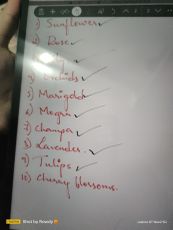 1) Sunflower
2) Rose
3) Lily
4) Orchids
5) Marigold
6) Mogra
7) Champa
8) Lavender.
9) Tulips
10) Cherry blossoms.